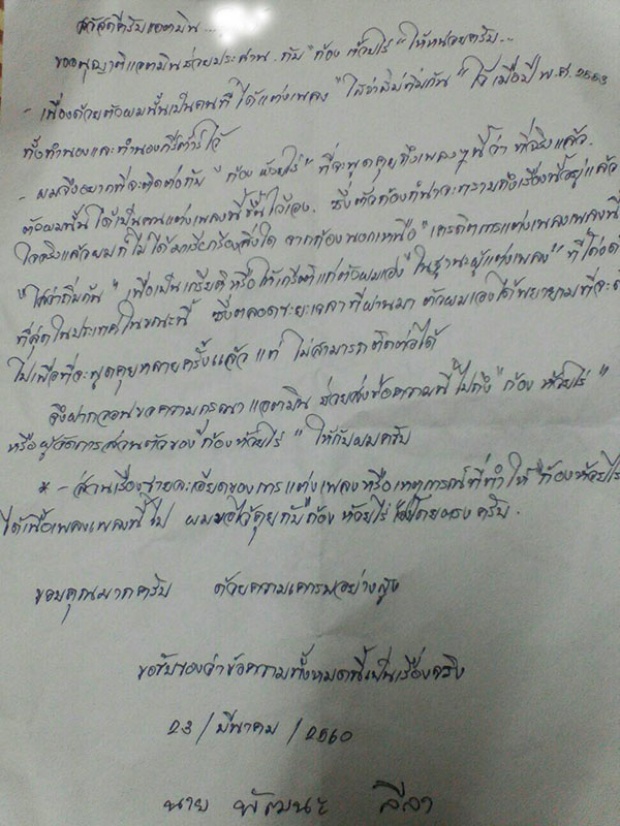 สวัสดีครับแอดมิน...
ขออนุญาติแอดมินช่วยประสาน กับ "ก้อง ห้วยไร่" ให้หน่อยครับ...
- เนื่องด้วยตัวผมนั้นเป็นคนที่ได้แต่งเพลง "ไสว่าสิบ่ถิ่มกัน" ไว้ เมื่อปี พ.ศ. 2553
ทั้งทำนองและทำนองกีตาร์ไว้
- ผมจึงอยากที่จะติดต่อกับ "ก้อง ห้วยไร่" ที่จะพูดคุยถึงเพลงๆนี้ว่า ที่จริงแล้ว
ตัวผมนั้นได้เป็นคนแต่งเพลงนี้ขึ้นไว้เอง. ซึ่งตัวก้องก็น่าจะทราบถึงเรื่องนี้อยู่แล้ว
ใจจริงแล้วผมก็ไม่ได้มาเรียกร้องสิ่งใด จากก้องนอกเหนือ "เครดิตการแต่งเพลงเพลงนี้
"ไสว่าถิ่มกัน" เพื่อเป็นเกรียติหรือให้เกรีติแก่ตัวผมเอง "ในฐานะผู้แต่งเพลง" ที่โด่งดัง
ที่สุดในประเทศในขณะนี้ ซึ่งตลอดระยะเวลาที่ผ่านมา ตัวผมเองได้พยายามที่จะ
ไปเพื่อที่จะพูดคุยหลายครั้งแล้ว แต่ ไม่สามารถติดต่อได้
จึงฝากวอนขอความกรุณา แอดมิน ช่วยส่งข้อความนี้ ไปถึง "ก้อง ห้วยไร่"
หรือผู้จัดการส่วนตัวของ "ก้องห้วยไร่" ให้กับผมครับ
* - ส่วนเรื่องรายละเอียดของการแต่งเพลงหรือเหตุการณ์ที่ทำให้ "ก้องห้วยไร่
ได้เนื้อเพลงเพลงนี้ไป ผมขอไว้คุยกับก้อง ห้วยไร่ โดยตรงครับ.
ขอบคุณมากครับ ด้วยความเคารพอย่างสูง
ขอรับรองว่าข้อความทั้งหมดนี้เป็นเรื่องจริง
23 / มีนาคม / 2560
นาย พัฒนะ ลีลา